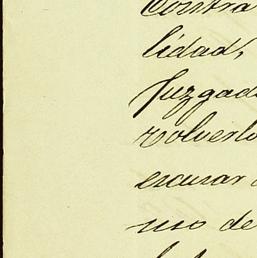 Contra
lidad,
Juzgad
volverlo
escusar
uso de